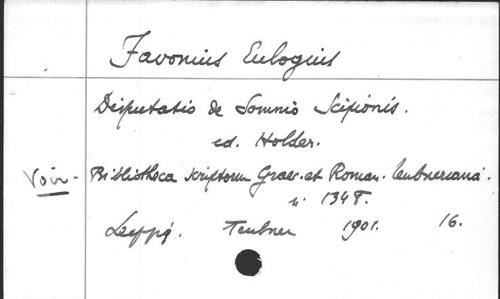 Favonius Eulogius
Disputatio de Somnio Scipionis.
ed. Holder.
Voir - Bibliotheca scriptorum Graec. et Roman. Teubneriana.
n. 1348.
Leipzig. Teubner 1901. 16.